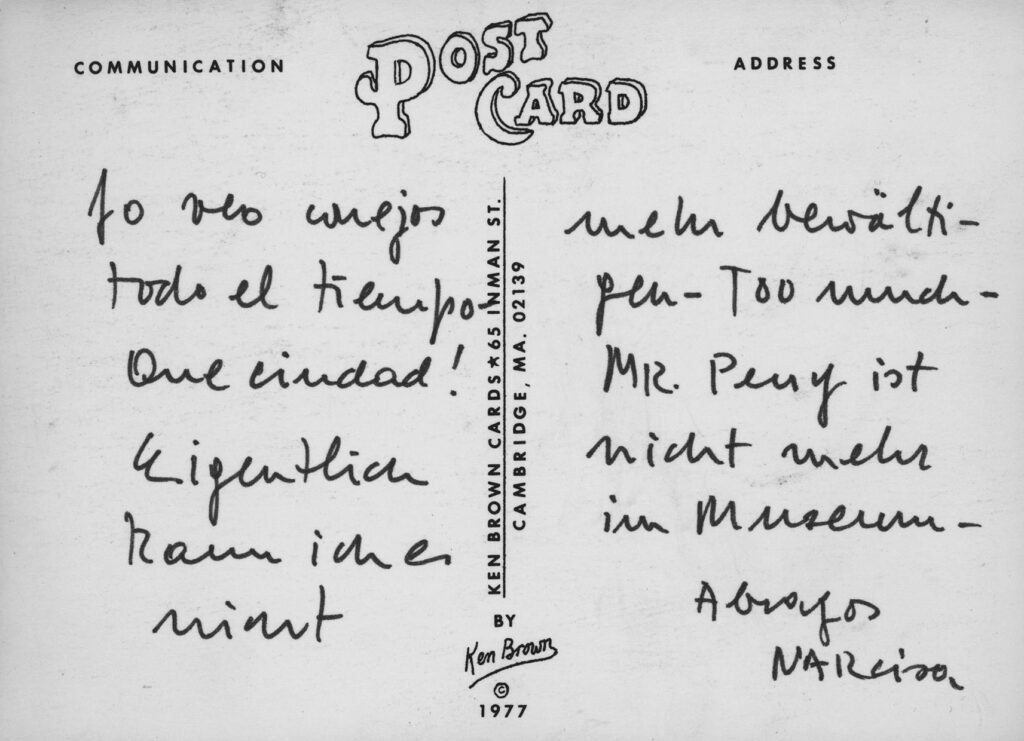 COMMUNICATION
POST CARD
ADDRESS
Yo veo conejos
todo el tiempo-
Que ciudad!
Eigentlich
kann ich es
nicht
mehr bewälti-
gen- Too much-
MR. Perry ist
nicht mehr
im Museum-
Abrazos
NARCisa
KEN BROWN CARDS★65 INMAN ST.
CAMBRIDGE, MA. 02139
BY
Ken Brown
©
1977